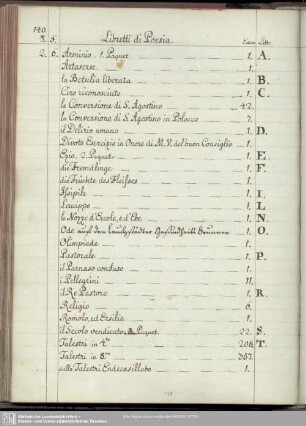 140.
S. 5. Libretti di Poesia. Exem. Litt.
2. 6. Arminio. 1. Paquet 1. A.
Artaserse 1.
la Betulia liberata 1. B.
Ciro riconosciuto 1. C.
la Conversione di S. Agostino 42.
la Conversione di S. Agostino in Polacco 7.
il Delirio umano 1. D.
Divoto Esercizio in Onore di M. V. del buon Consiglio 1.
Ezio. 2. Paquets 1. E.
die Fremdlinge 1. F.
die Früchte des Fleißes 1.
Issipile 1. I.
Leucippo 1. L.
le Nozze d'Ercole, e d'Ebe 1. N.
Ode auf den Lauchstädter Gesundheit Brunnen 1. O.
Olimpiade 1.
Pastorale 1. P.
il Parnaso confuso 1.
i Pellegrini 11.
il Re Pastore 1. R.
Religio 6.
Romolo, ed Ersilia 1.
il Secolo vendicato, Paquet 22. S.
Talestri in 4to 208. T.
Talestri in 8vo 357.
sulla Talestri Endecasillabo 1.